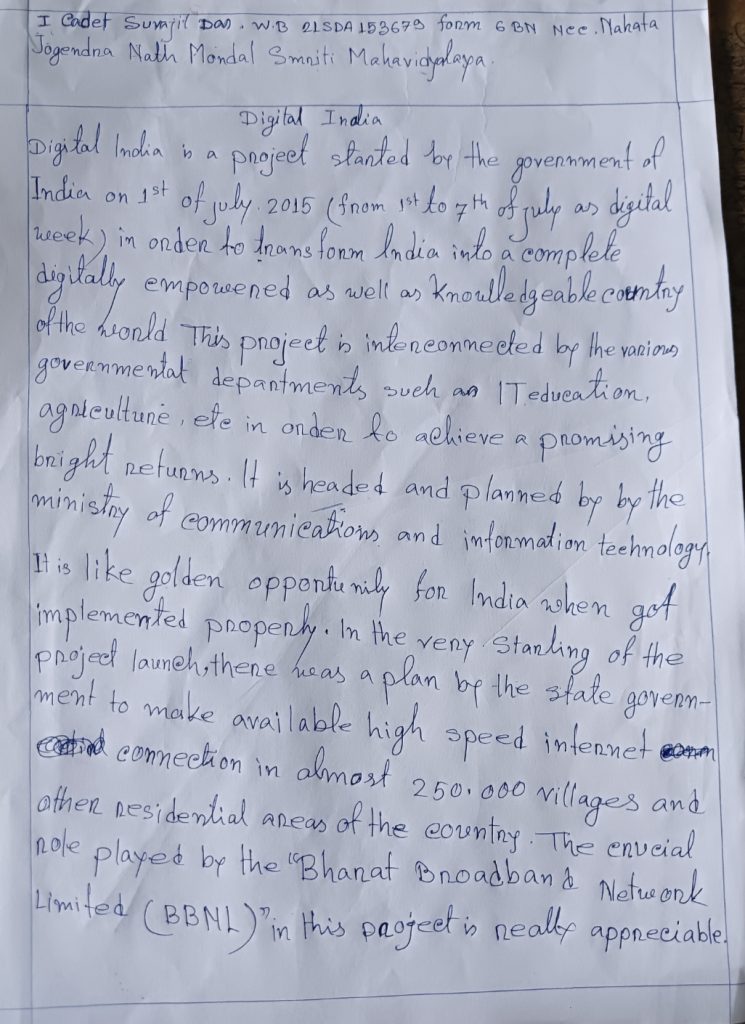 I Cadet Surajit Das. W.B 21SDA153679 form 6 BN Ncc. Nahata
Jogendra Nath Mondal Smriti Mahavidyalaya.
Digital India
Digital India is a project started by the government of
India on 1st of july. 2015 (from 1st to 7th of july as digital
week) in order to transform India into a complete
digitally empowered as well as Knowlledgeable country
of the world This project is interconnected by the various
governmental departments such as IT education,
agriculture, etc in order to achieve a promising
bright returns. It is headed and planned by by the
ministry of communications and information technology.
It is like golden opportunity for India when got
implemented properly. In the very Starting of the
project launch, there was a plan by the state govern-
ment to make available high speed internet
connection in almost 250.000 villages and
other residential areas of the country. The crucial
role played by the "Bharat Broadband Network
Limited (BBNL)" in this project is really appreciable.